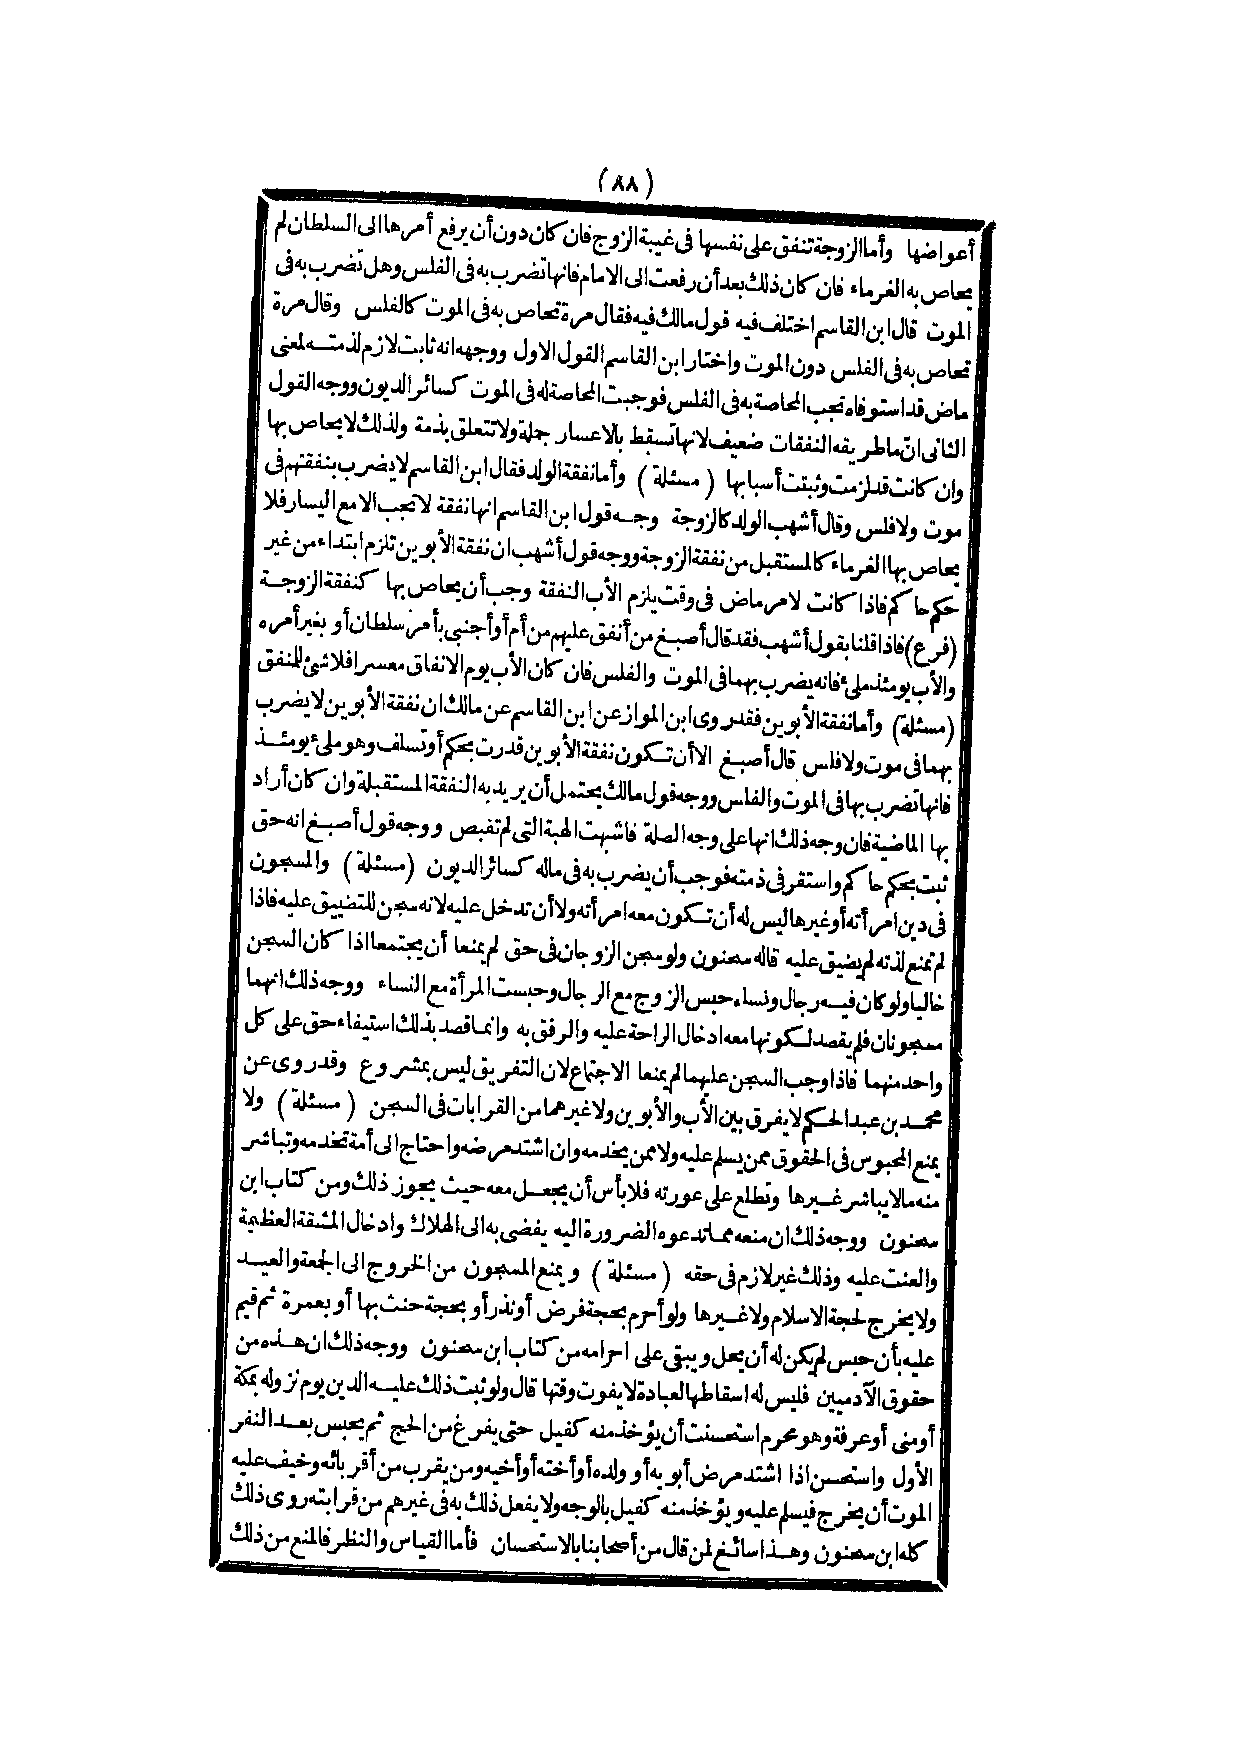 (٨٨)
أعواضها وأما الزوجة تنفق على نفسها فى غيبة الزوج فان كان دون أن يرفع أمرها الى السلطان لم
يحاص به الغرماء فان كان ذلك بعد أن رفعت الى الامام فانها تضرب به فى الفلس وهل تضرب به فى
الموت قال ابن القاسم اختلف فيه قول مالك فيه فقال مرة تحاص به فى الموت كالفلس وقال مرة
تحاص به فى الفلس دون الموت واختار ابن القاسم القول الاول ووجهه انه ثابت لازم لذمته لمعنى
ماض قد استوفاه تجب المحاصة به فى الفلس فوجبت المحاصة له فى الموت كسائر الديون ووجه القول
الثانى انّ ما طريقه النفقات ضعيف لانها تسقط بالاعسار جملة ولا تتعلق بذمة ولذلك لا يحاص بها
وان كانت قد لزمت وثبتت أسبابها (مسئلة) وأما نفقة الولد فقال ابن القاسم لا يضرب بنفقتهم فى
موت ولا فلس وقال أشهب الولد كالزوجة وجه قول ابن القاسم انها نفقة لا تجب الا مع اليسار فلا
يحاص بها الغرماء كالمستقبل من نفقة الزوجة ووجه قول أشهب ان نفقة الأبوين تلزم ابتداء من غير
حكم حاكم فاذا كانت لامر ماض فى وقت يلزم الأب النفقة وجب أن يحاص بها كنفقة الزوجة
(فرع) فاذا قلنا بقول أشهب فقد قال أصبغ من أنفق عليهم من أم أو أجنبى بأمر سلطان أو بغير أمره
والأب يومئذ ملىء فانه يضرب بهما فى الموت والفلس فان كان الأب يوم الانفاق معسرا فلا شئ للمنفق
(مسئلة) وأما نفقة الأبوين فقد روى ابن المواز عن ابن القاسم عن مالك ان نفقة الأبوين لا يضرب
بهما فى موت ولا فلس قال أصبغ الا أن تكون نفقة الأبوين قدرت بحكم أو تسلف وهو ملىء يومئذ
فانها تضرب بها فى الموت والفلس ووجه قول مالك يحتمل أن يريد به النفقة المستقبلة وان كان أراد
بها الماضية فان وجه ذلك انها على وجه الصلة فاشبهت الهبة التى لم تقبض ووجه قول أصبغ انه حق
ثبت بحكم حاكم واستقر فى ذمته فوجب أن يضرب به فى ماله كسائر الديون (مسئلة) والمسجون
فى دين امرأته أو غيرها ليس له أن تكون معه امرأته ولا أن تدخل عليه لانه سجن للتضييق عليه فاذا
لم تمنع لذته لم يضيق عليه قاله سحنون ولو سجن الزوجان فى حق لم يمنعا أن يجتمعا اذا كان السجن
خاليا ولو كان فيه رجال ونساء حبس الزوج مع الرجال وحبست المرأة مع النساء ووجه ذلك انهما
مسجونان فلم يقصد لكونها معه ادخال الراحة عليه والرفق به وانما قصد بذلك استيفاء حق على كل
واحد منهما فاذا وجب السجن عليهما لم يمنعا الاجتماع لان التفريق ليس بمشروع وقد روى عن
محمد بن عبد الحكم لا يفرق بين الأب والأبوين ولا غيرهما من القرابات فى السجن (مسئلة) ولا
يمنع المحبوس فى الحقوق ممن يسلم عليه ولا ممن يخدمه وان اشتد مرضه واحتاج الى أمة تخدمه وتباشر
منه مالا يباشر غيرها وتطلع على عورته فلا بأس أن يجعل معه حيث يجوز ذلك ومن كتاب ابن
سحنون ووجه ذلك ان منعه مما تدعوه الضرورة اليه يفضى به الى الهلاك وادخال المشقة العظيمة
والعنت عليه وذلك غير لازم فى حقه (مسئلة) ويمنع المسجون من الخروج الى الجمعة والعيد
ولا يخرج لحجة الاسلام ولا غيرها ولو أحرم بحجة فرض أو نذر أو بحجة حنث بها أو بعمرة ثم قيم
عليه بأن حبس لم يكن له أن يحل ويبقى على احرامه من كتاب ابن سحنون ووجه ذلك ان هذه من
حقوق الآدميين فليس له اسقاطها لعبادة لا يفوت وقتها قال ولو ثبت ذلك عليه الدين يوم نزوله بمكة
أو منى أو عرفة وهو محرم استحسنت أن يؤخذ منه كفيل حتى يفرغ من الحج ثم يحبس بعد النفر
الأول واستحسن اذا اشتد مرض أبويه أو ولده أو أخته أو أخيه ومن يقرب من أقربائه وخيف عليه
الموت أن يخرج فيسلم عليه ويؤخذ منه كفيل بالوجه ولا يفعل ذلك به فى غيرهم من قرابته روى ذلك
كله ابن سحنون وهذا سائغ لمن قال من أصحابنا بالاستحسان فأما القياس والنظر فالمنع من ذلك